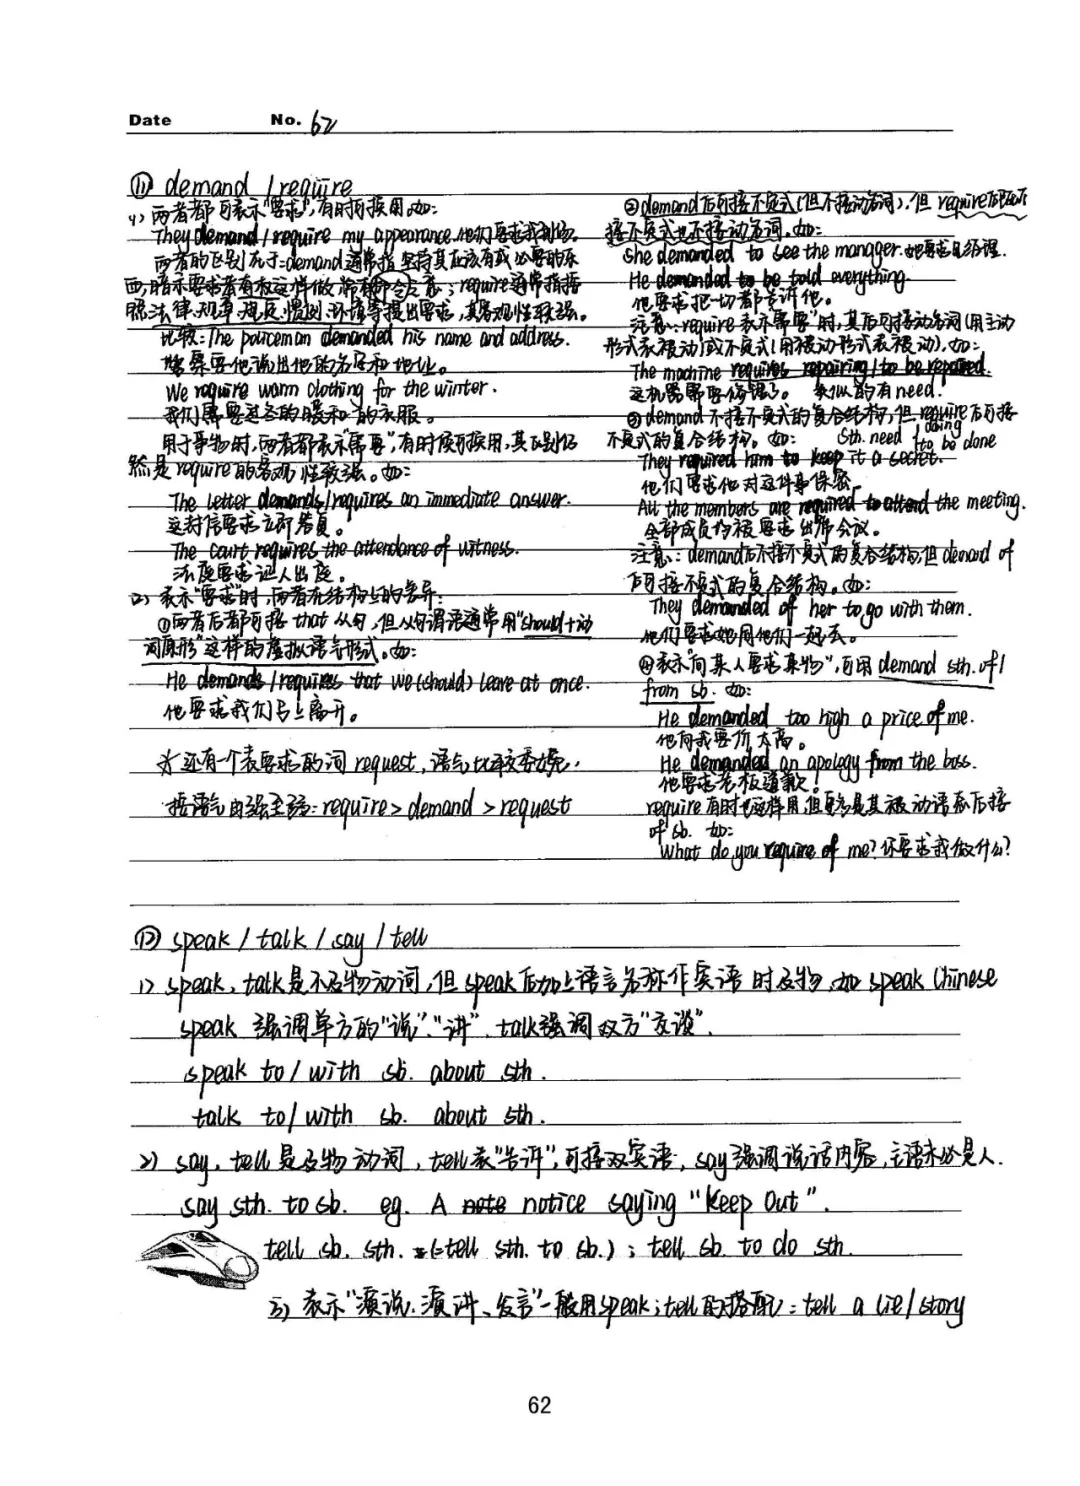 Date No. 62
⑪ demand / require
1) 两者都可表示"要求",有时可换用。如:
They demand / require my appearance. 他们要求我到场。
两者的区别在于: demand 通常指坚持其应该有或必要的东
西,暗示要求者有权这样做 require 通常指按
照法律、规章、规定、惯例、环境等提出要求,其客观性较强。
比较: The policeman demanded his name and address.
警察要他说出他的名字和地址。
We require warm clothing for the winter.
我们需要过冬的暖和的衣服。
用于事物时,两者都表示"需要",有时候可换用,其区别仍
然是 require 的客观性较强。如:
The letter demands / requires an immediate answer.
这封信要求立即答复。
The court requires the attendance of witness.
法庭要求证人出庭。
2) 表示"要求"时,两者在结构上的差异:
①两者后都可接 that 从句,但从句谓语通常用"should+动
词原形"这样的虚拟语气形式。如:
He demands / requires that we (should) leave at once.
他要求我们马上离开。
☆还有一个表要求的词 request, 语气比较委婉.
按语气由强至弱: require > demand > request
②demand 后可接不定式(但不接动名词), 但 require 后既不
接不定式也不接动名词。如:
She demanded to see the manager. 她要求见经理.
He demanded to be told everything.
他要求把一切都告诉他。
注意: require 表示"需要"时, 其后可接动名词(用主动
形式表被动)或不定式(用被动形式表被动). 如:
The machine requires repairing / to be repaired.
这机器需要修理了。 类似的有 need.
③demand 不接不定式的复合结构, 但 require 后可接
不定式的复合结构。如: Sth. need doing / to be done
They required him to keep it a secret.
他们要求他对这件事保密.
All the members are required to attend the meeting.
全部成员均被要求出席会议。
注意: demand 后不接不定式的复合结构, 但 demand of
后可接不定式的复合结构。如:
They demanded of her to go with them.
他们要求她同他们一起去。
④表示"向某人要求某物", 可用 demand sth. of /
from sb. 如:
He demanded too high a price of me.
他向我要价太高。
He demanded an apology from the boss.
他要求老板道歉!
require 有时也这样用, 但更多是其被动语态后接
of sb. 如:
What do you require of me? 你要求我做什么?
⑫ speak / talk / say / tell
1) speak, talk 是不及物动词, 但 speak 后加上语言名称作宾语时及物, 如 speak Chinese
speak 强调单方的"说"、"讲". talk 强调双方"交谈".
speak to / with sb. about sth.
talk to / with sb. about sth.
2) say, tell 是及物动词, tell 表"告诉", 可接双宾语, say 强调说话内容, 主语未必是人.
say sth. to sb. eg. A note notice saying "Keep Out".
tell sb. sth. (=tell sth. to sb.); tell sb. to do sth.
3) 表示"演说、演讲、发言"一般用 speak; tell 的搭配: tell a lie / story
62